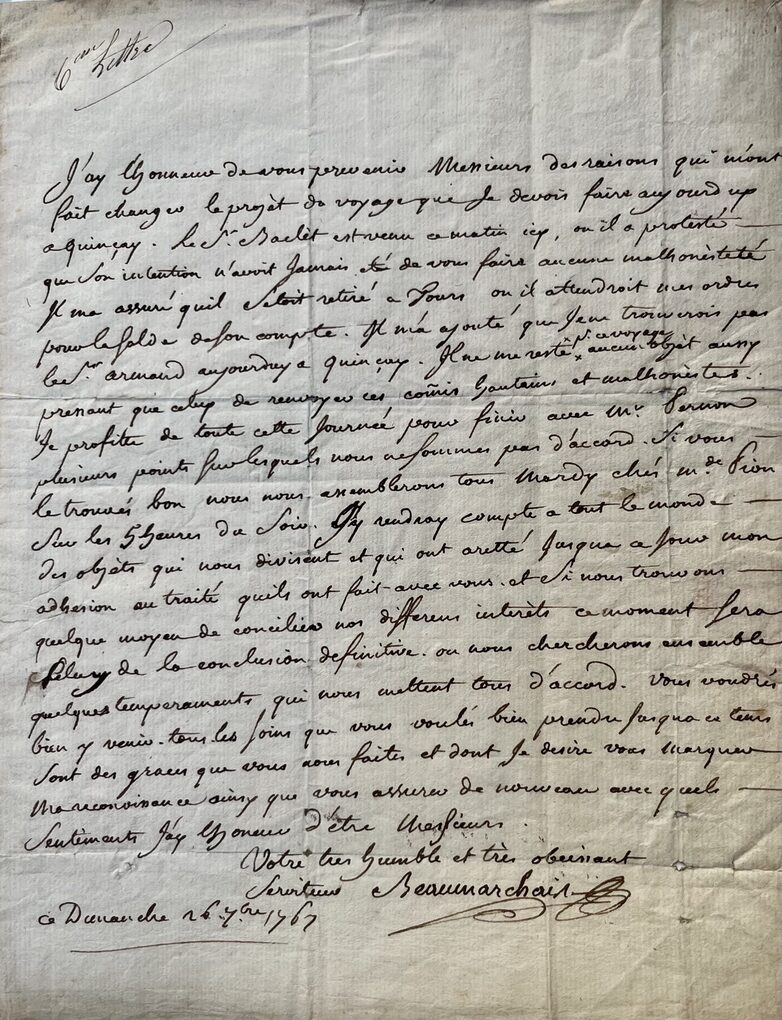 6eme Lettre
J'ay l'honneur de vous prevenir Messieurs des raisons qui m'ont
fait changer le projèt du voyage que Je devois faire aujourd'uy
a quinçay. Le Sr. Baclèt est venu ce matin icy, ou il a protesté
que Son intention n'avoit Jamais été de vous faire aucune malhonèsteté
Il m'a assuré quil S'étoit retiré a Tours ou il attendroit mes ordres
pour le Solde de son compte. Il m'a ajouté que Je ne trouverois pas
le Sr. armand aujourduy a quinçay. Il ne me reste pr. ce voyage aucun objèt aussy
pressant que celuy de renvoyer ces com̃is hautains et malhonestes.
Je profitte de toute cette Journée pour finir avec Mr. Pernon
plusieurs points Sur lesquels nous ne Sommes pas d'accord. Si vous
le trouvés bon nous nous assemblerons tous Mardy chés mde. Pion
Sur les 5 heures du Soir. J'y rendray compte a tout le monde
des objèts qui nous divisent et qui ont arètté Jusqua ce Jour mon
adhesion au traité quils ont fait avec vous. et Si nous trouvons
quelque moyen de concilier nos differens interèts ce moment Sera
Celuy de la conclusion definitive. ou nous chercherons ensemble
quelques temperaments qui nous mettent tous d'accord. vous voudrés
bien y venir. tous les Soins que vous voulés bien prendre Jusqua ce tems
Sont des graces que vous nous faites et dont Je desire vous marquer
Ma reconoissance ainsy que vous assurer de nouveau avec quels
Sentiments J'ay l'honeur d'être Messieurs.
Votre très humble et très obeissant
Serviteur Beaumarchais
ce Dimanche 26 7bre 1767